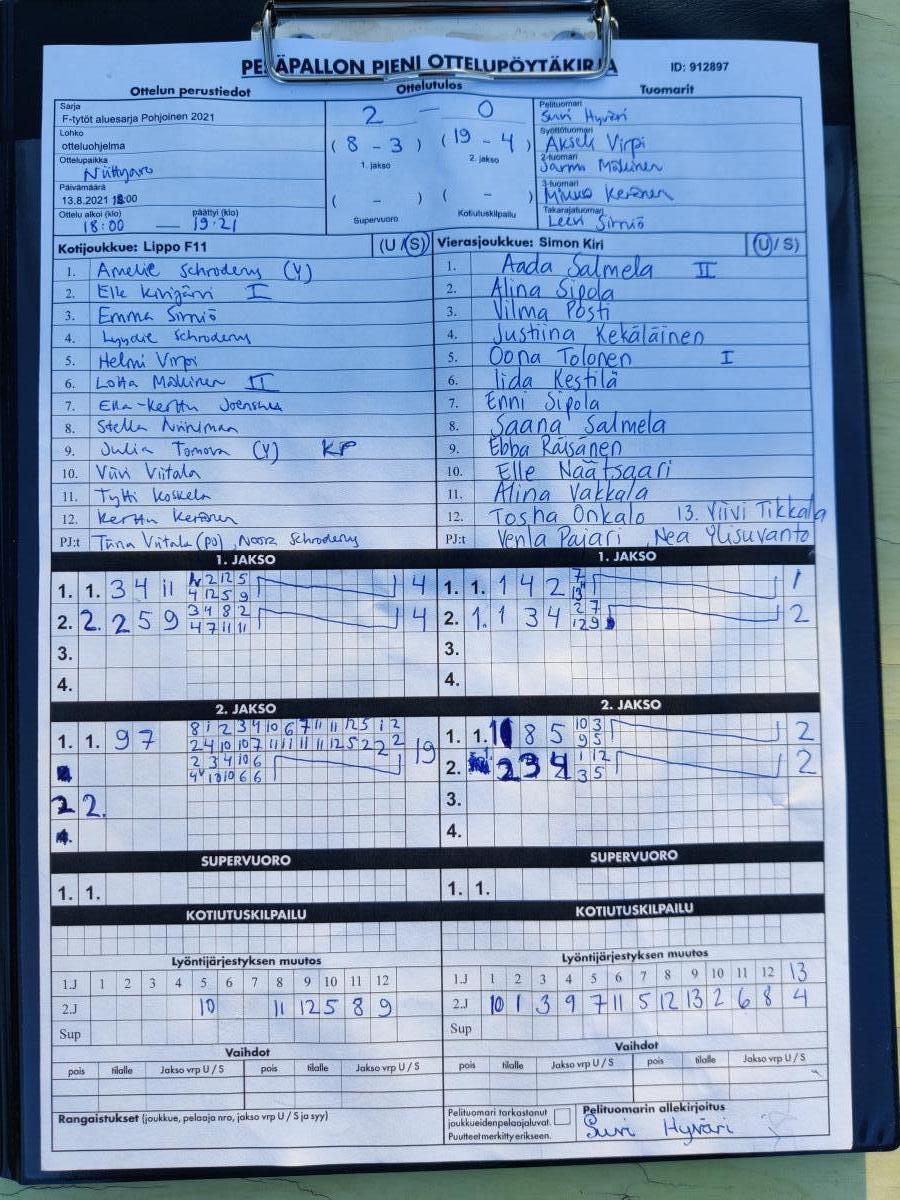 PESÄPALLON PIENI OTTELUPÖYTÄKIRJA ID: 912897
Ottelun perustiedot Ottelutulos Tuomarit
Sarja
F-tytöt aluesarja Pohjoinen 2021
Lohko
otteluohjelma
Ottelupaikka
Niittyaro
Päivämäärä
13.8.2021 18:00
Ottelu alkoi (klo) päättyi (klo)
18:00 — 19:21
2 — 0
(8 - 3) (19 - 4)
1. jakso 2. jakso
( - ) ( - )
Supervuoro Kotiutuskilpailu
Pelituomari
Suvi Hyväri
Syöttötuomari
Akseli Virpi
2-tuomari
Jarmo Mäkinen
3-tuomari
Mikko Keränen
Takarajatuomari
Leevi Sirniö
Kotijoukkue: Lippo F11 (U / S)
1. Amelie Schroderus (Y)
2. Elle Kivijärvi I
3. Emma Sirniö
4. Lyydie Schroderus
5. Helmi Virpi
6. Lotta Mäkinen II
7. Ella-Kerttu Joensuu
8. Stella Niiniman
9. Julia Tomova (Y) KP
10. Viivi Viitala
11. Tytti Koskela
12. Kerttu Keränen
PJ:t Tiina Viitala (PJ), Noora Schroderus
Vierasjoukkue: Simon Kiri (U / S)
1. Aada Salmela II
2. Alina Sipola
3. Vilma Posti
4. Justiina Kekäläinen
5. Oona Tolonen I
6. Iida Kestilä
7. Enni Sipola
8. Saana Salmela
9. Ebba Räisänen
10. Elle Näätsaari
11. Alina Vakkala
12. Tosha Onkalo 13. Viivi Tikkala
PJ:t Venla Pajari, Nea Ylisuvanto
1. JAKSO
1. 1. 3 4 11 2 12 5 4
4 12 5 9
2. 2. 2 5 9 3 4 8 2 4
4 7 11 11
3.
4.
1. JAKSO
1. 1. 1 4 2 7 1
13
2. 1. 1 3 4 2 7 2
12 9
3.
4.
2. JAKSO
1. 1. 9 7 8 1 2 3 4 10 6 7 11 11 12 5 1 2 19
2 4 10 10 7 11 11 11 11 11 12 5 2 2 2
2 3 4 10 6
4 10 10 6 6
2 2.
4.
2. JAKSO
1. 1. 1 8 5 10 3 2
9 5
2. 2 3 4 1 12 2
3 5
3.
4.
SUPERVUORO SUPERVUORO
1. 1. 1. 1.
KOTIUTUSKILPAILU KOTIUTUSKILPAILU
Lyöntijärjestyksen muutos
1.J 1 2 3 4 5 6 7 8 9 10 11 12
2.J 10 11 12 5 8 9
Sup
Lyöntijärjestyksen muutos
1.J 1 2 3 4 5 6 7 8 9 10 11 12 13
2.J 10 1 3 9 7 11 5 12 13 2 6 8 4
Sup
Vaihdot Vaihdot
pois tilalle Jakso vrp U / S pois tilalle Jakso vrp U / S
pois tilalle Jakso vrp U / S pois tilalle Jakso vrp U / S
Rangaistukset (joukkue, pelaaja nro, jakso vrp U / S ja syy)
Pelituomari tarkastanut
joukkueiden pelaajaluvat.
Puutteet merkitty erikseen.
Pelituomarin allekirjoitus
Suvi Hyväri